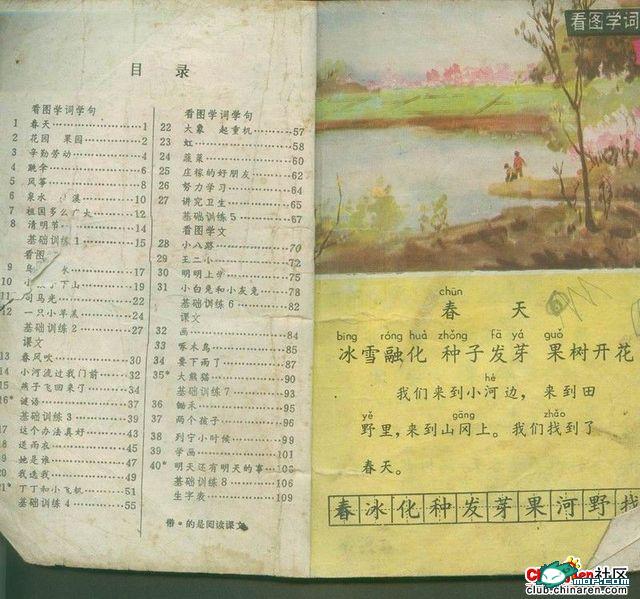 目 录
看图学词学句
1 春天 1
2 花园 果园 2
3 辛勤劳动 4
4 跳伞 6
5 风筝 8
6 泉水 溪 10
7 祖国多么广大 12
8 清明节 14
基础训练1 15
看图
9 17
10 小 下山 19
11 司马光 22
12 一只小羊羔 24
基础训练2 27
课文
13 春风吹 30
14 小河流过我门前 32
15 燕子飞回来了 34
16* 谜语 37
基础训练3 39
17 这个办法真好 43
18 送雨衣 45
19 她是谁 47
20 我选我 49
21* 丁丁和小飞机 51
基础训练4 55
看图学词学句
22 大象 起重机 57
23 虹 58
24 蔬菜 60
25 庄稼的好朋友 62
26 努力学习 64
27 讲究卫生 65
基础训练5 67
看图学文
28 小八路 70
29 王二小 72
30 明明上学 75
31 小白兔和小灰兔 78
基础训练6 82
课文
32 画 84
33 啄木鸟 85
34 要下雨了 87
35* 大熊猫 90
基础训练7 93
36 锄禾 95
37 两个孩子 96
38 列宁小时候 99
39 学画 101
40* 明天还有明天的事
基础训练8 106
生字表 109
带*的是阅读课文
看图学词
chūn
春 天
bīng róng huà zhǒng fā yá guǒ
冰雪融化 种子发芽 果树开花
hé
我们来到小河边，来到田
yě gāng zhǎo
野里，来到山冈上。我们找到了
春天。
春冰化种发芽果河野找
社区
club.chinaren.com